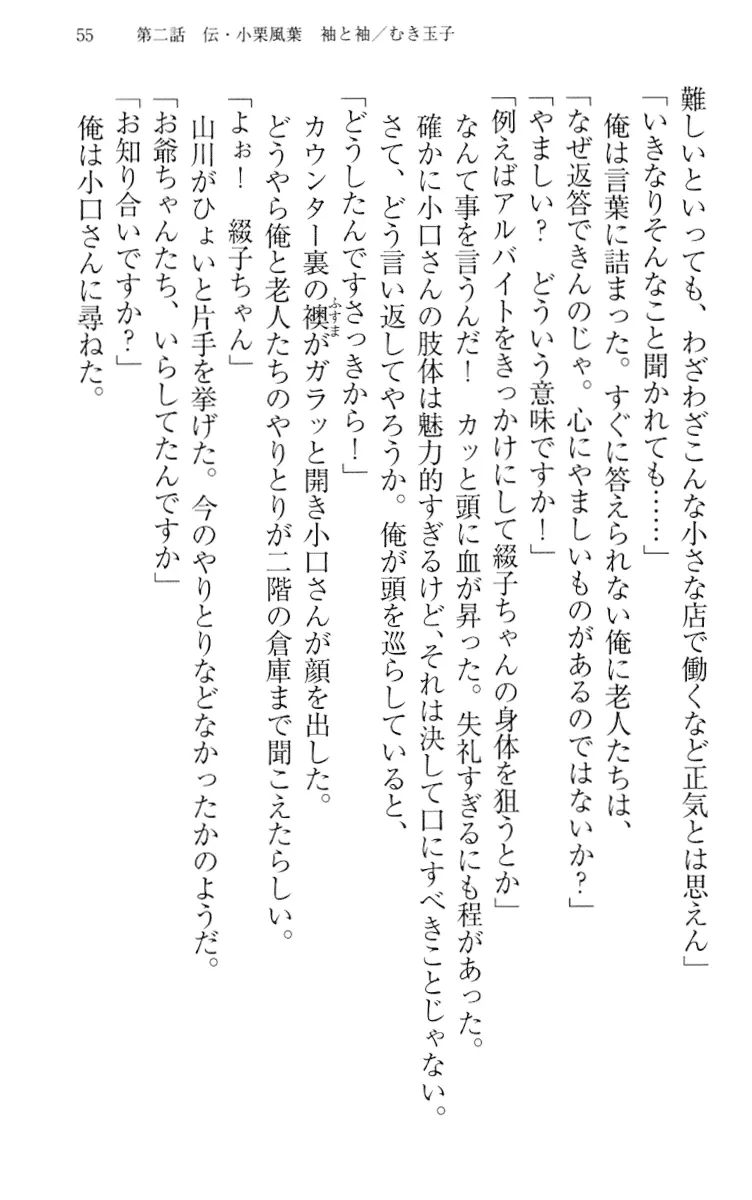 55　第二話　伝・小栗風葉　袖と袖／むき玉子
難しいといっても、わざわざこんな小さな店で働くなど正気とは思えん」
「いきなりそんなこと聞かれても……」
俺は言葉に詰まった。すぐに答えられない俺に老人たちは、
「なぜ返答できんのじゃ。心にやましいものがあるのではないか？」
「やましい？　どういう意味ですか！」
「例えばアルバイトをきっかけにして綴子ちゃんの身体を狙うとか」
なんて事を言うんだ！　カッと頭に血が昇った。失礼すぎるにも程があった。
確かに小口さんの肢体は魅力的すぎるけど、それは決して口にすべきことじゃない。
さて、どう言い返してやろうか。俺が頭を巡らしていると、
「どうしたんですさっきから！」
カウンター裏の襖がガラッと開き小口さんが顔を出した。
ふすま
どうやら俺と老人たちのやりとりが二階の倉庫まで聞こえたらしい。
「よぉ！　綴子ちゃん」
山川がひょいと片手を挙げた。今のやりとりなどなかったかのようだ。
「お爺ちゃんたち、いらしてたんですか」
「お知り合いですか？」
俺は小口さんに尋ねた。